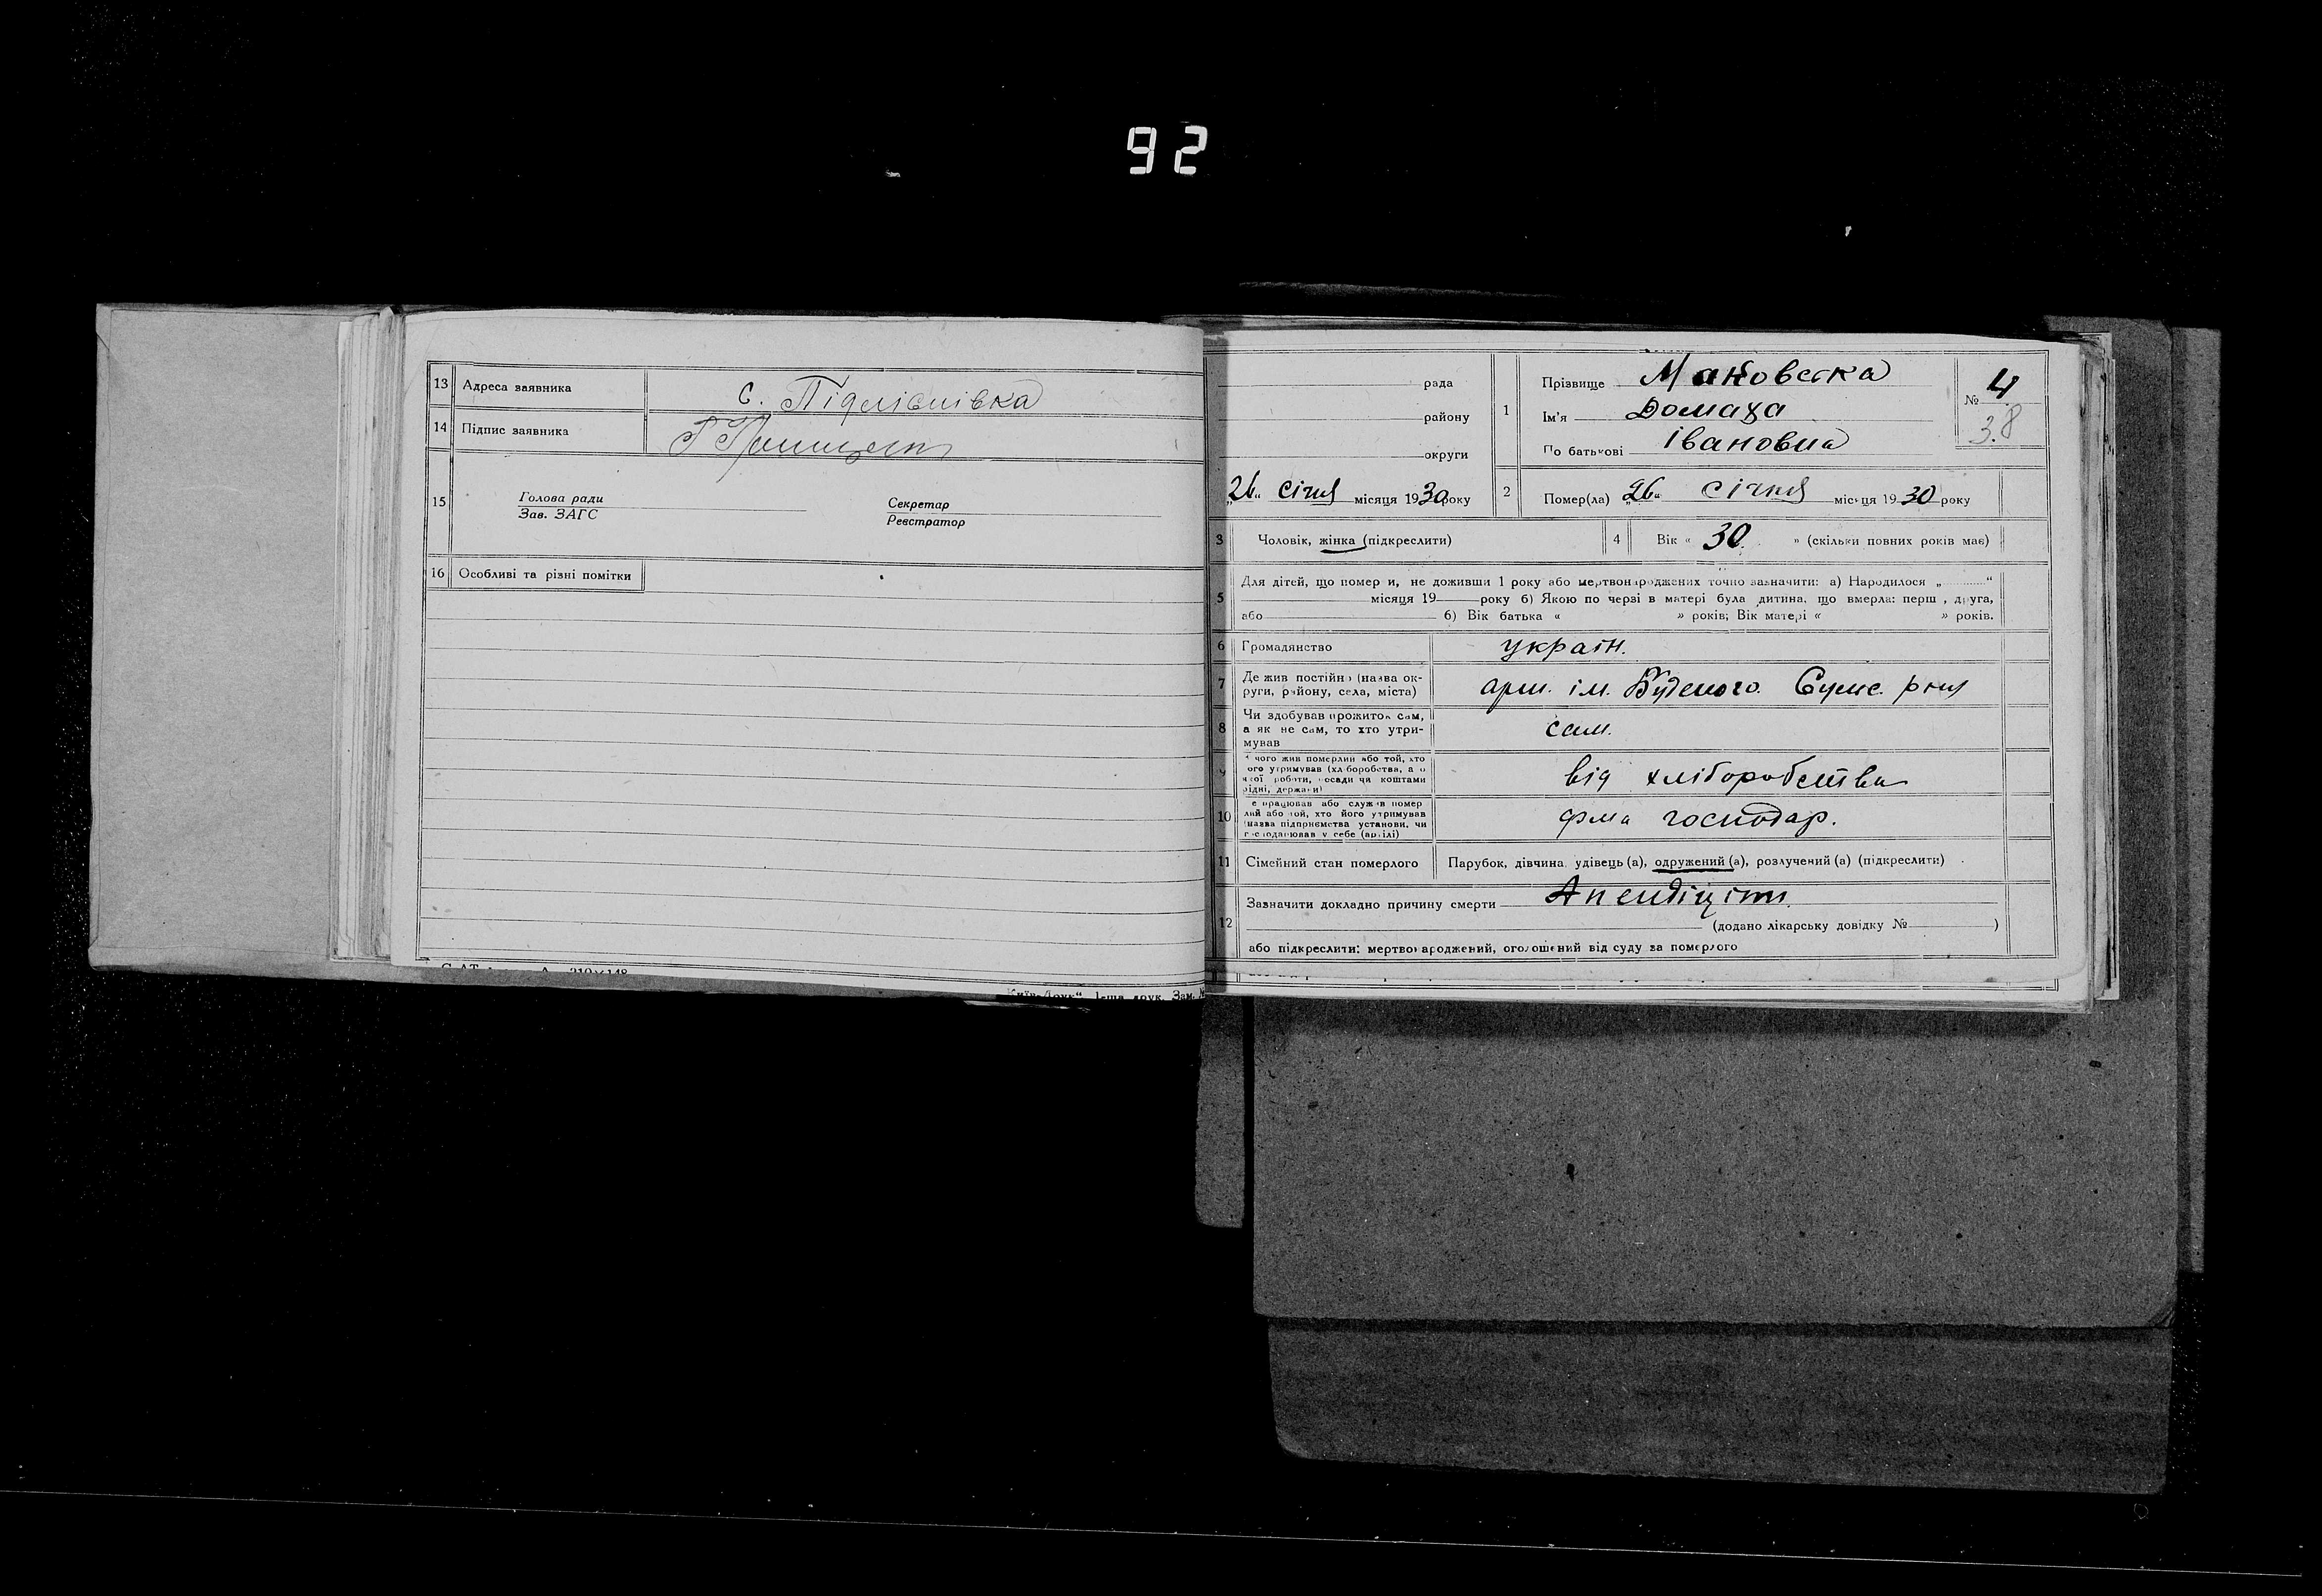 92
13 Адреса заявника с. Підліснівка
14 Підпис заявника
15 Голова ради
Зав. ЗАГС
Секретар
Реєстратор
16 Особливі та різні помітки
рада
району
округи
„26“ січня місяця 1930 року
1 Прізвище Маковська
Ім'я Домаха
По батькові Івановна
№ 4
38
2 Помер(ла) „26“ січня місяця 1930 року
3 Чоловік, жінка (підкреслити)
4 Вік « 30 » (скільки повних років має)
5 Для дітей, що померли, не доживши 1 року або мертвонароджених точно зазначити: а) Народилося „ “
місяця 19 року б) Якою по черзі в матері була дитина, що вмерла: перш , друга,
або б) Вік батька « » років; Вік матері « » років.
6 Громадянство україн.
7 Де жив постійно (назва ок-
руги, району, села, міста) арт. ім. Будемого. Сумс. р
8 Чи здобував прожиток сам,
а як не сам, то хто утри-
мував сам.
9 чого жив померлий або той, хто
ого утримував (хліборобства, а о
якої роботи, посади чи коштами
рідні, держави) від хліборобства
10 е працював або служив помер
лий або той, хто його утримував
(назва підприємства установи, чи
господарював у себе (артілі) господар.
11 Сімейний стан померлого Парубок, дівчина, удівець (а), одружений (а), розлучений (а) (підкреслити)
12 Зазначити докладно причину смерти Апендіціт.
(додано лікарську довідку № )
або підкреслити: мертвонароджений, оголошений від суду за померлого